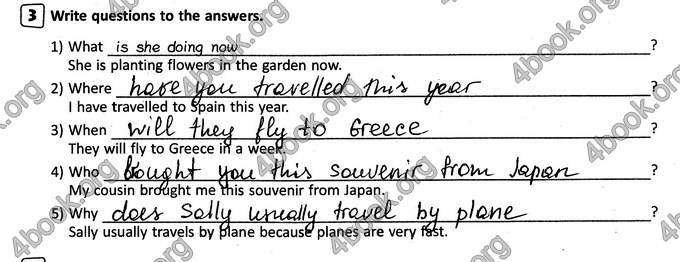 3 Write questions to the answers.
1) What is she doing now ?
She is planting flowers in the garden now.
2) Where have you travelled this year ?
I have travelled to Spain this year.
3) When will they fly to Greece ?
They will fly to Greece in a week.
4) Who bought you this souvenir from Japan ?
My cousin brought me this souvenir from Japan.
5) Why does Sally usually travel by plane ?
Sally usually travels by plane because planes are very fast.
4book.org
4book.org
4book.org
4book.org
4book.org
4book.org
4book.org
4book.org